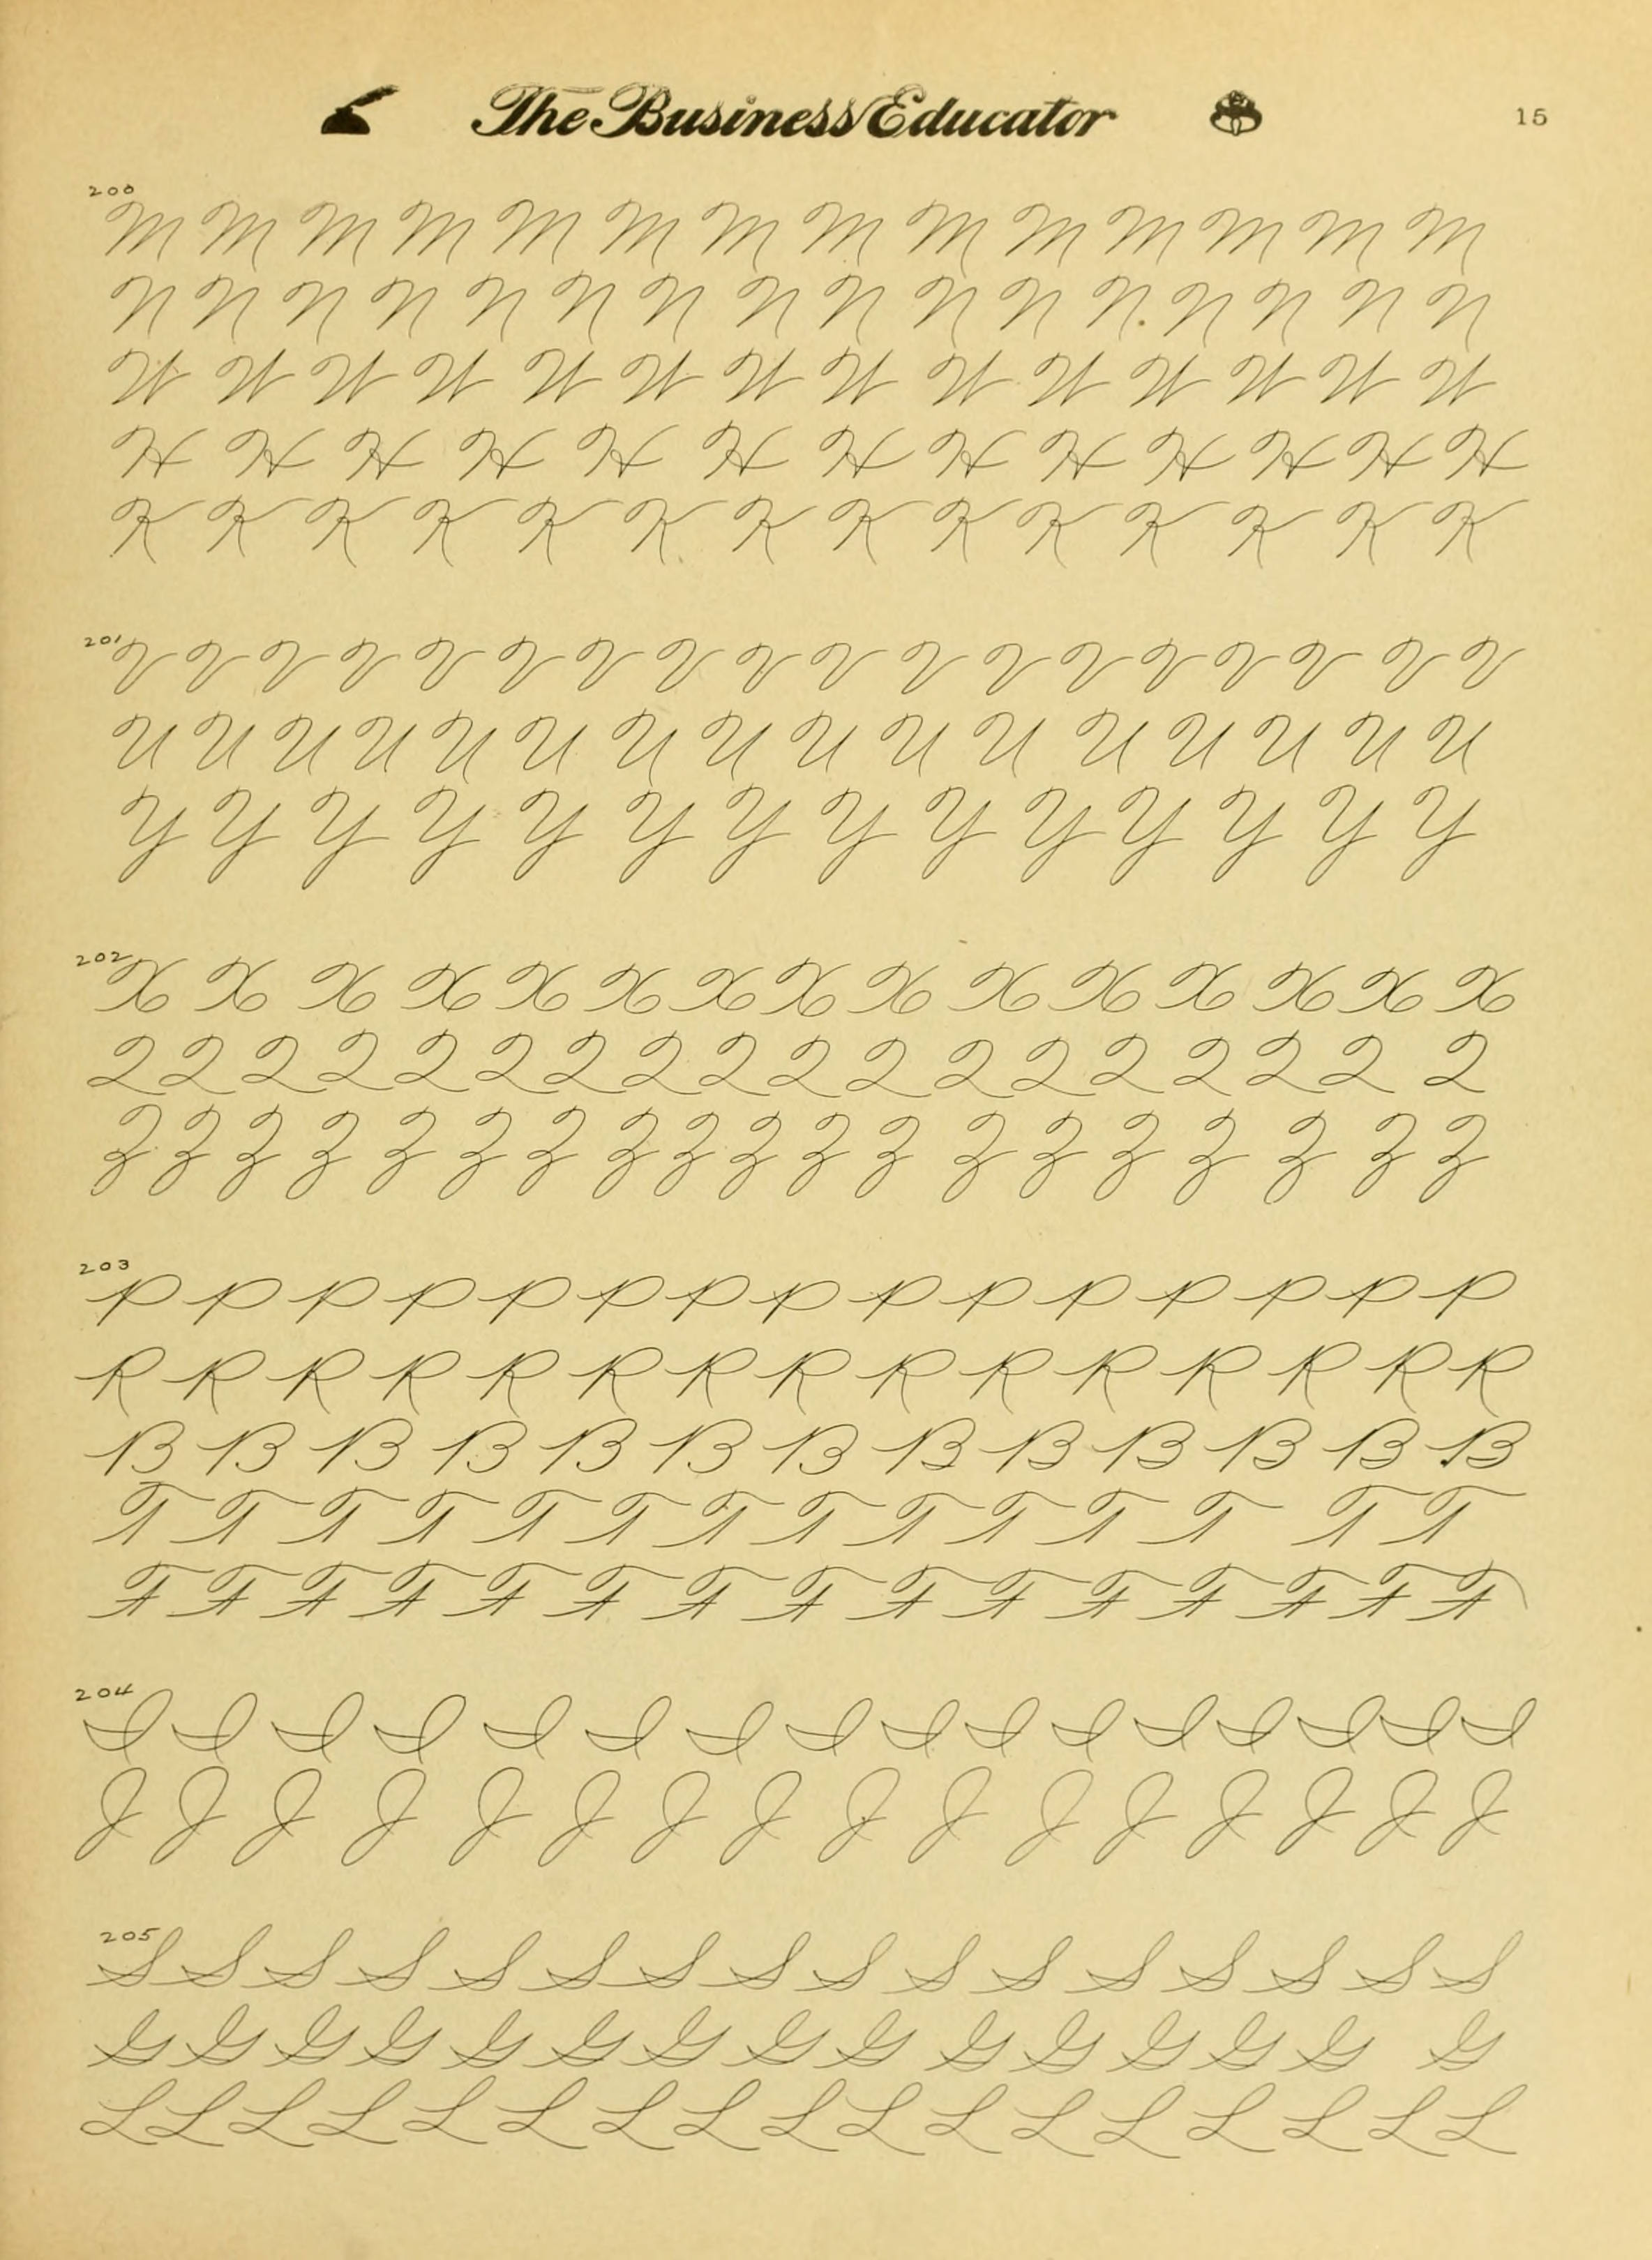 The Business Educator 15
200
M M M M M M M M M M M M M M
N N N N N N N N N N N N N N N N
W W W W W W W W W W W W W W
H H H H H H H H H H H H H
K K K K K K K K K K K K K K
201
V V V V V V V V V V V V V V V V V V
U U U U U U U U U U U U U U U U
Y Y Y Y Y Y Y Y Y Y Y Y Y Y
202
X X X X X X X X X X X X X X X
Q Q Q Q Q Q Q Q Q Q Q Q Q Q Q Q Q Q
Z Z Z Z Z Z Z Z Z Z Z Z Z Z Z Z Z Z Z
203
P P P P P P P P P P P P P P P
R R R R R R R R R R R R R R R
B B B B B B B B B B B B B
T T T T T T T T T T T T T T
F F F F F F F F F F F F F F F
204
I I I I I I I I I I I I I I I I
J J J J J J J J J J J J J J J J
205
S S S S S S S S S S S S S S S S
G G G G G G G G G G G G G G G
L L L L L L L L L L L L L L L L L